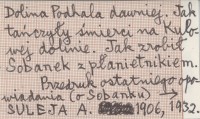 Dolina Podhala dawniej. Jak
tańczyły śmierci na Kulo-
wej dolinie. Jak zrobił
Sobanek z płanietnikiem.
Przedruk ostatniego opo-
wiadania (o Sobanku)
SULEJA A. 1906, 1932.